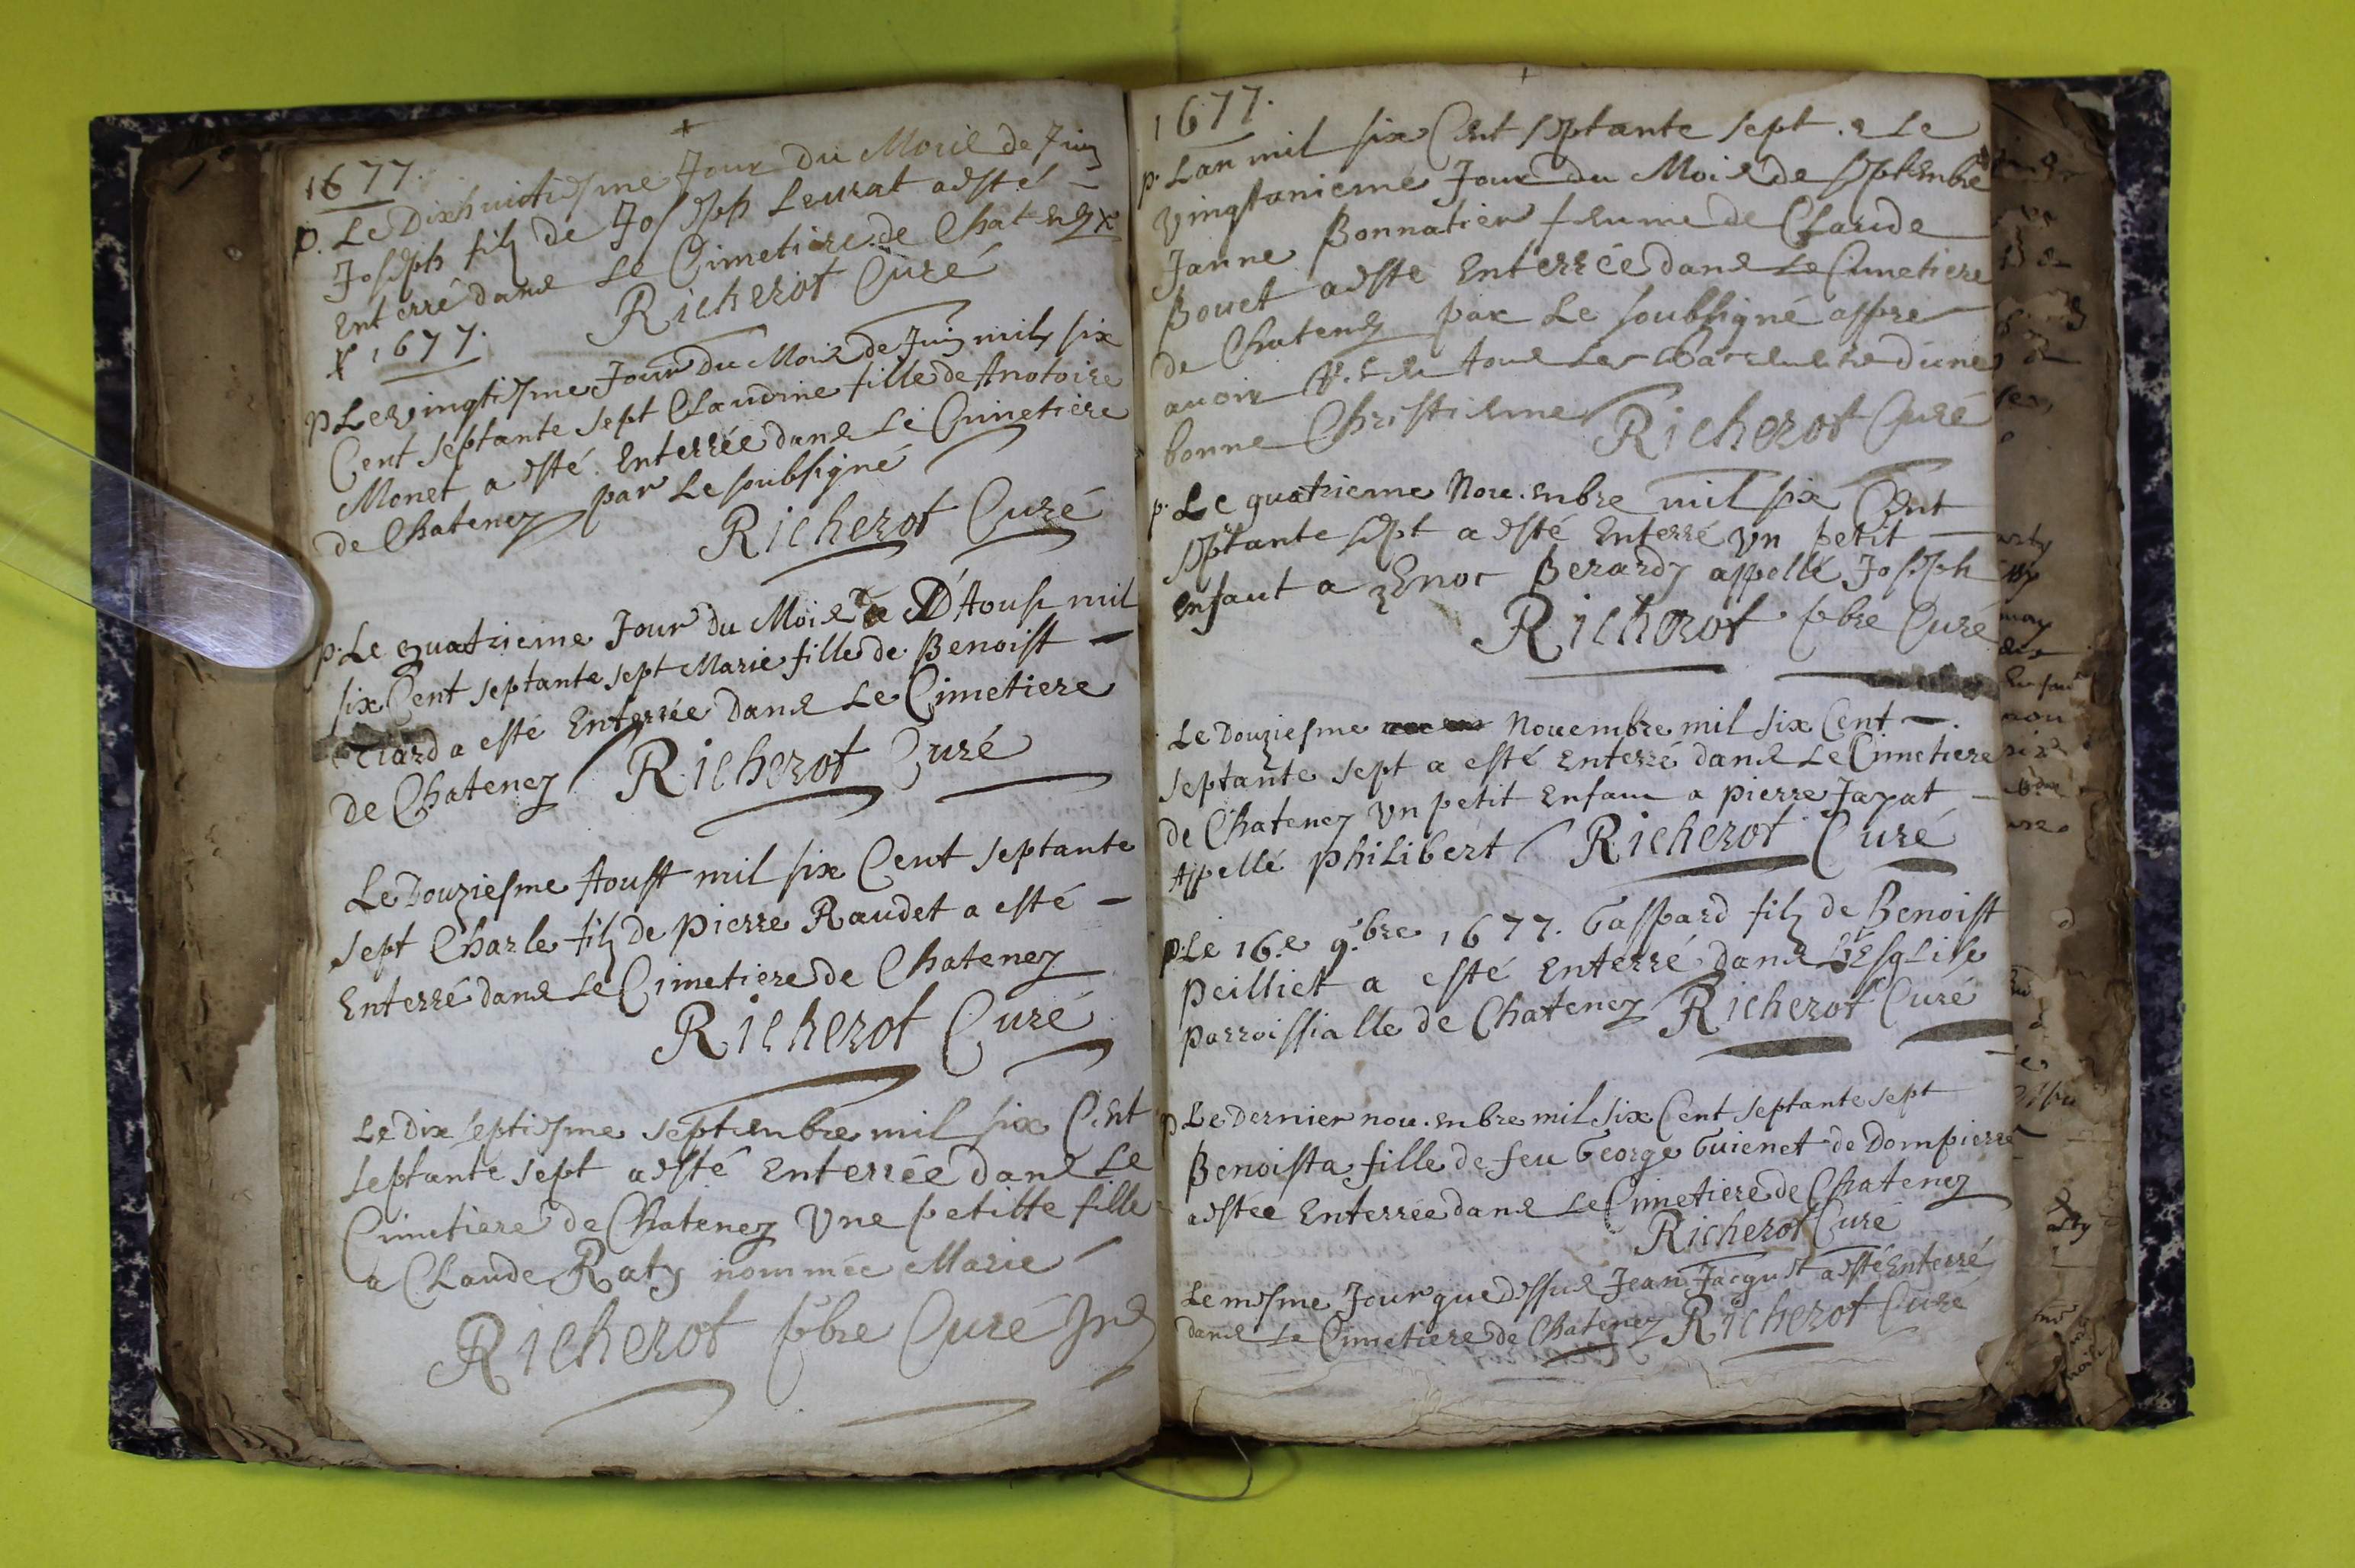 1677.
p. Le Dixhuictiesme Jour du Mois de Juin
Joseph filz de Joseph Leurat a esté
Enterré dans Le Cimetiere de Chatenez x
Richerot Curé
x 1677.
p Le vingtiesme Jour du Mois de Juin mil six
Cent septante sept Claudine fille de Anotoire
Monet a esté Enterrée dans Le Cimetiere
de Chatenez par Le soubsigné
Richerot Curé
p. Le quatrieme Jour du Mois de D'Aoust mil
six Cent septante sept Marie fille de Benoist
a esté Enterrée dans Le Cimetiere
de Chatenez Richerot Curé
Le Douziesme Aoust mil six Cent septante
sept Charle filz de Pierre Raudet a esté
Enterré dans Le Cimetiere de Chatenez
Richerot Curé
Le Dix septiesme septembre mil six Cent
septante sept a esté Enterrée dans Le
Cimetiere de Chatenez Une petitte fille
a Claude Raty nommée Marie
Richerot pbre Curé
1677.
p. Lan mil six Cent septante sept. & Le
vingtanieme Jour du Mois de septembre
Janne Bonnatier femme de Claude
Bouet a esté Enterrée dans Le Cimetiere
de Chatenez par Le soubsigné appre
avoir tous Les d'une
bonne Chrestienne Richerot Curé
p. Le quatrieme Novembre mil six Cent
septante sept a esté Enterré Un petit
enfant a Enoc Berardy appellé Joseph
Richerot pbre Curé
Le Douziesme Novembre mil six Cent
septante sept a esté Enterré dans Le Cimetiere
de Chatenez Un petit Enfant a Pierre Jayat
Appellé Philibert Richerot Curé
p. Le 16.e 9.bre 1677. Gaspard filz de Benoist
Peilliet a esté Enterré dans L'Esglise
parroissialle de Chatenez Richerot Curé
p Le Dernier novembre mil six Cent septante sept
Benoista fille de feu George Guienet de Dompierre
a estée Enterrée dans Le Cimetiere de Chatenez
Richerot Curé
Le mesme Jour que dessus Jean Jacquet a esté Enterré
dans Le Cimetiere de Chatenez Richerot Curé